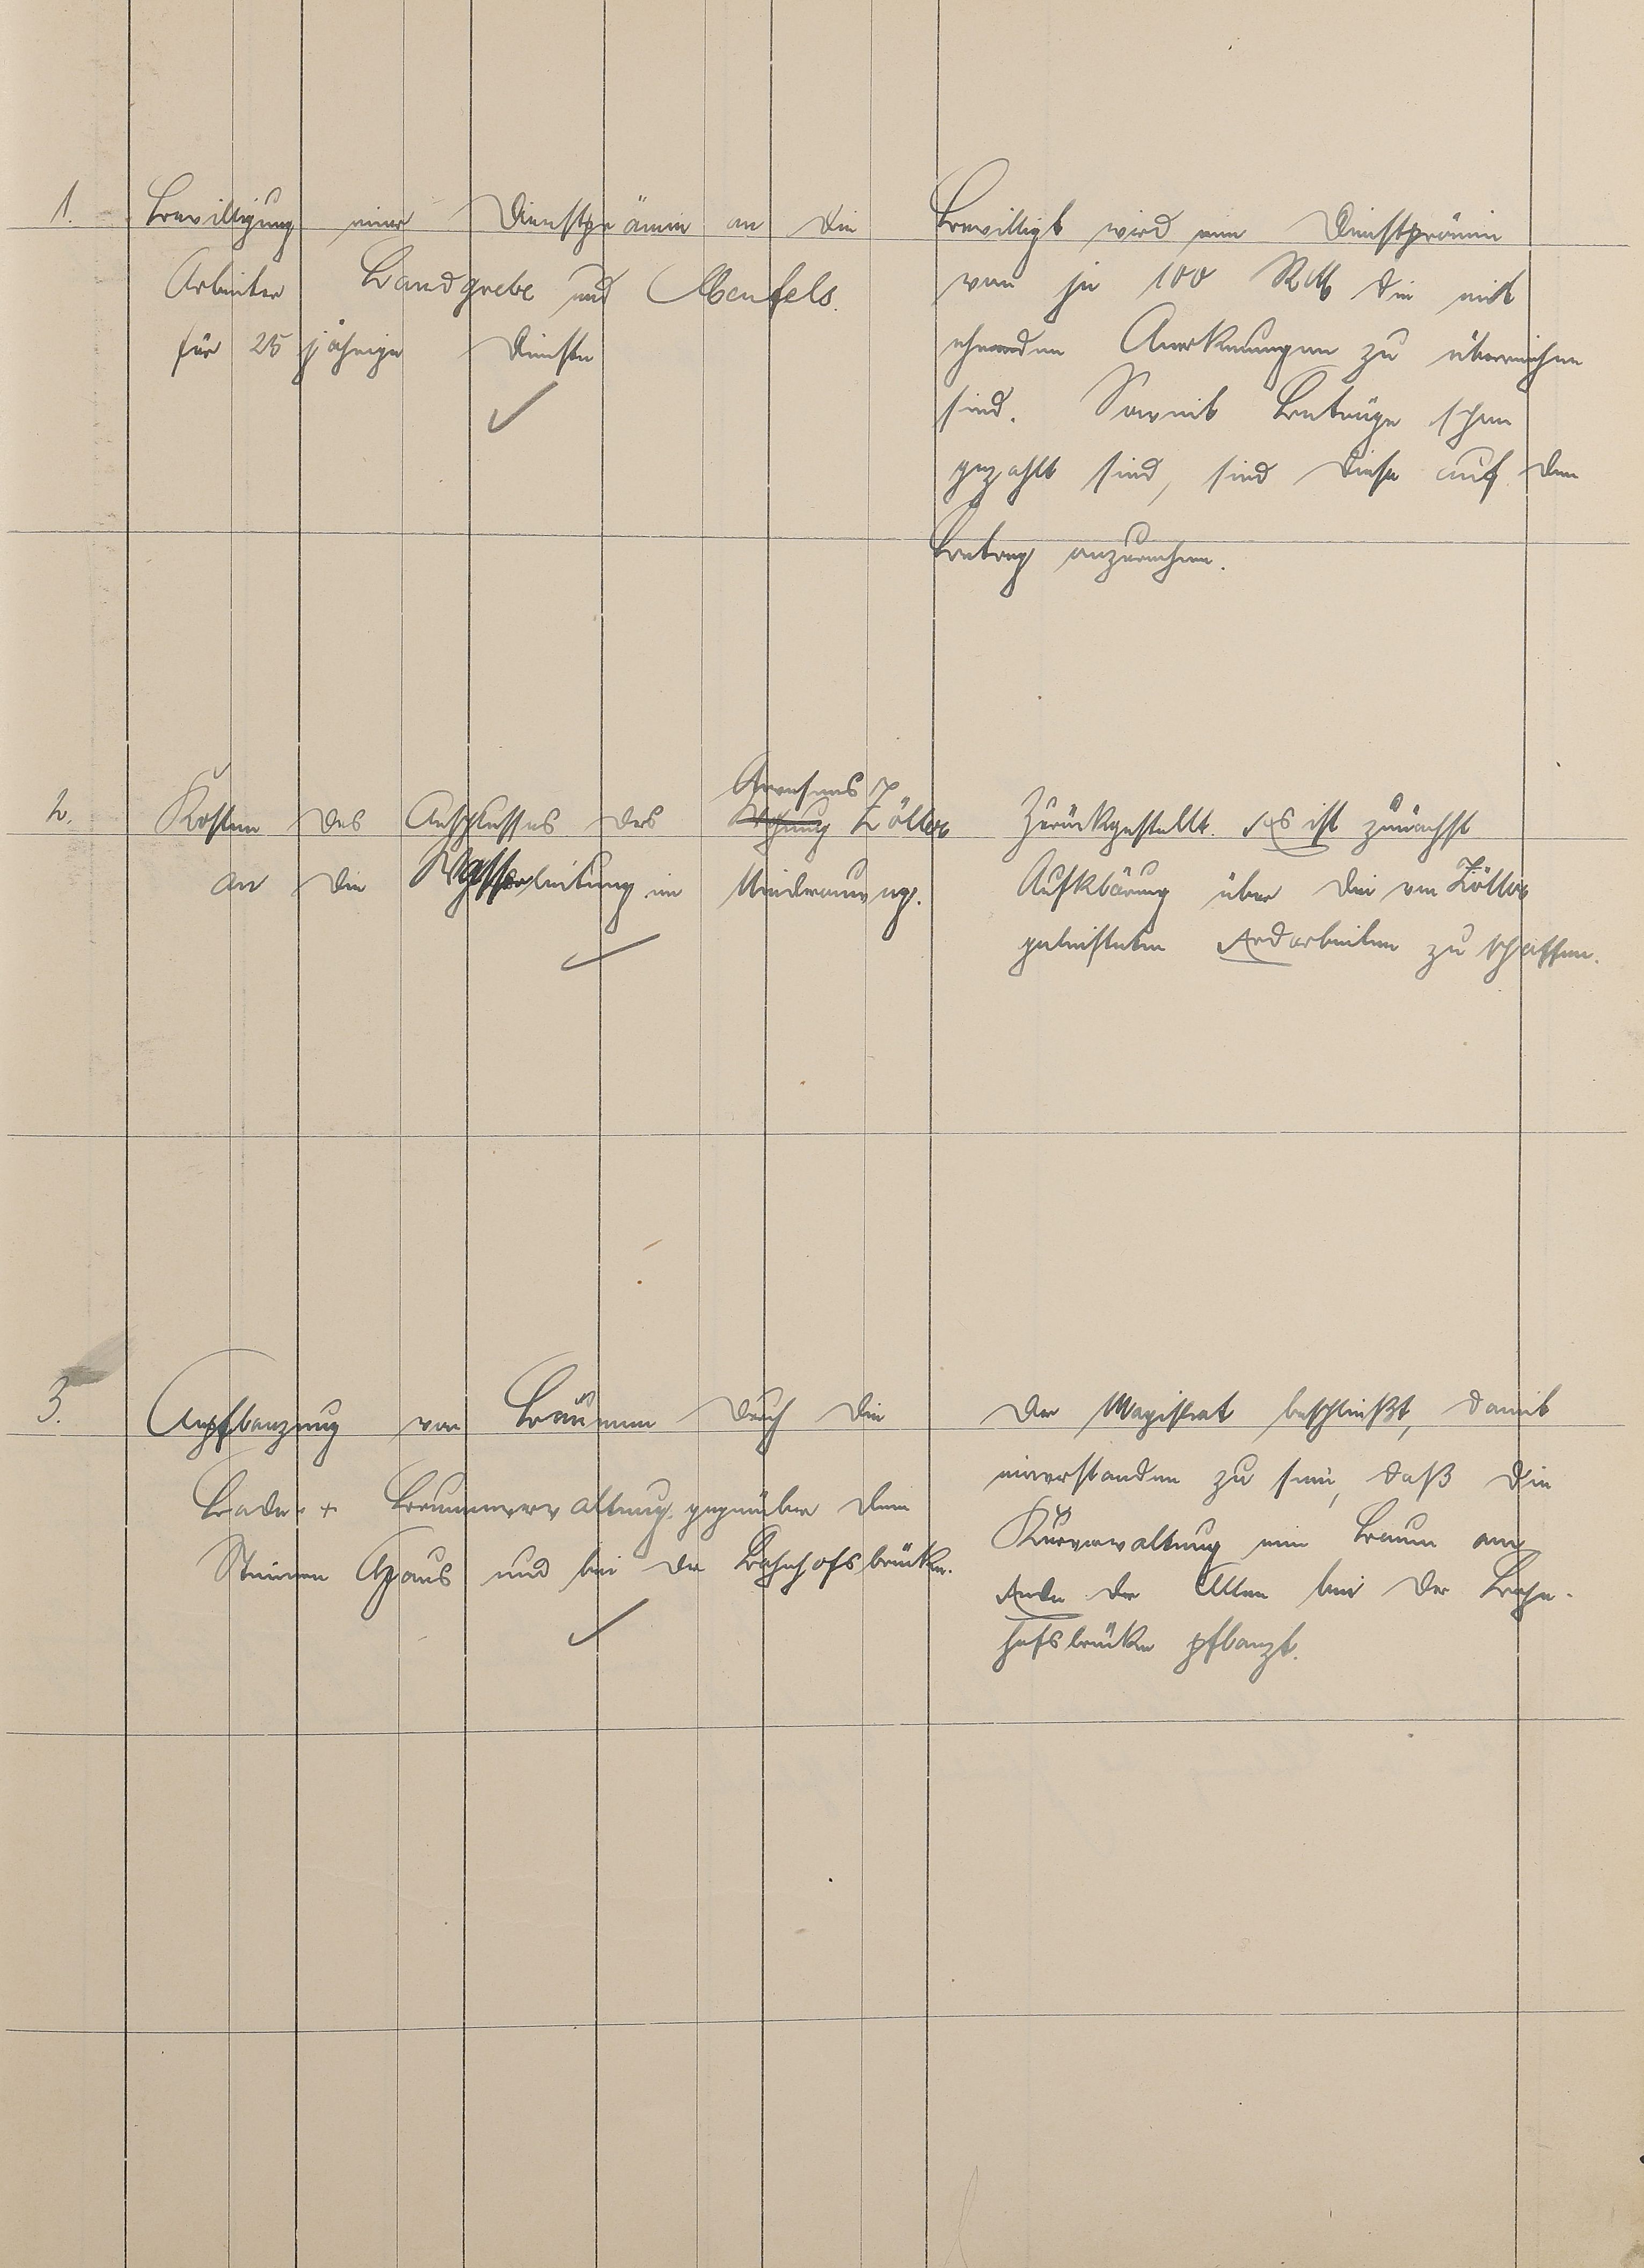 1.
Bewilligung einer Dienstprämie an die
Arbeiter Landgrebe und
für 25 jährige Dienste
Bewilligt wird eine Dienstprämie
von je 100 RM die mit
ehrenden Anerkennungen zu überreichen
sind. Soweit Beträge schon
gezahlt sind, sind diese auf den
Betrag anzurechnen.
2.
Anwesens
Kosten des Anschlusses des Wohnung Zöller
an die Wasserleitung im
Zurückgestellt. Es ist zunächst
Aufklärung über die von Zöller
geleisteten Erdarbeiten zu schaffen.
3.
Anpflanzung von Bäumen durch die
Bade- + Brunnenverwaltung gegenüber dem
Steinern Haus und bei der Bahnhofsbrücke.
Der Magistrat beschließt, damit
einverstanden zu sein, daß die
Kurverwaltung einen Baum am
Ende der Allee bei der Bahn-
hofsbrücke pflanzt.